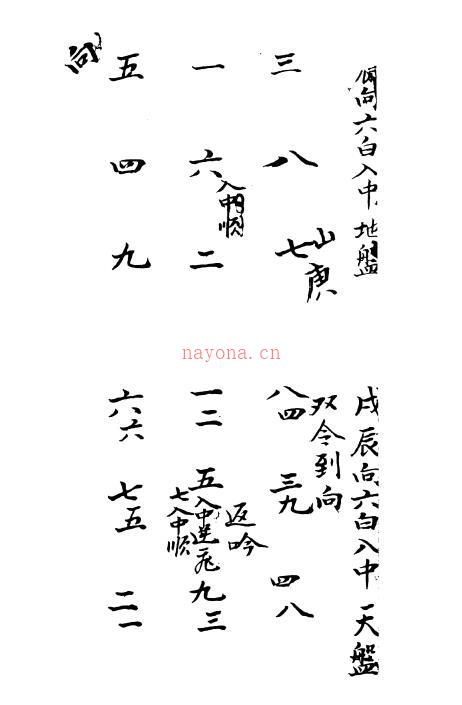 向六白入中地盤
三 一 五 向
八 六入中順 四
山庚
七 二 九
nayona.cn
戌辰向六白入中天盤
双令到向
八四 一二 六六
三九 五入中逆飛 七五
七入中順
返吟
四八 九三 二一